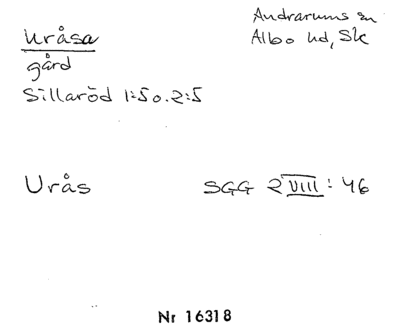 Uråsa
gård
Sillaröd 1:50.2:5
Andrarums sn
Albo hd, Sk
Urås
SGG 2 VIII: 46
Nr 16318